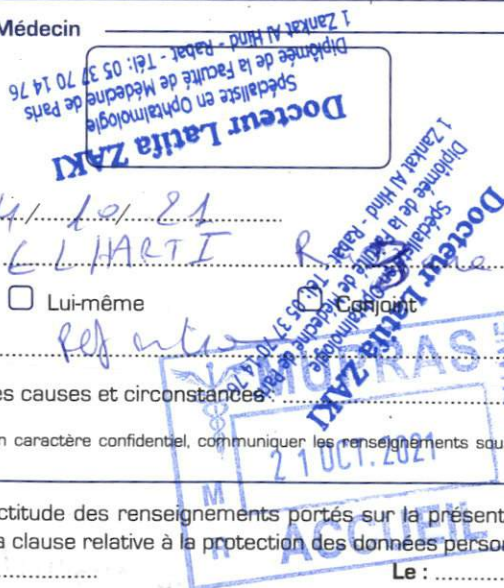 Médecin
Docteur Latifa ZAKI
Spécialiste en Ophtalmologie
Diplômée de la Faculté de Médecine de Paris
1 Zankat Al Hind - Rabat - Tél: 05 37 70 14 76
Docteur Latifa ZAKI
Spécialiste en Ophtalmologie
Diplômée de la Faculté de Médecine de Paris
1 Zankat Al Hind - Rabat - Tél: 05 37 70 14 76
/10/21
Lui-même Conjoint
es causes et circonstances
n caractère confidentiel, communiquer les renseignements sou
MUPRAS
21 OCT. 2021
M
ACCUEIL
ctitude des renseignements portés sur la présent
a clause relative à la protection des données person
Le :